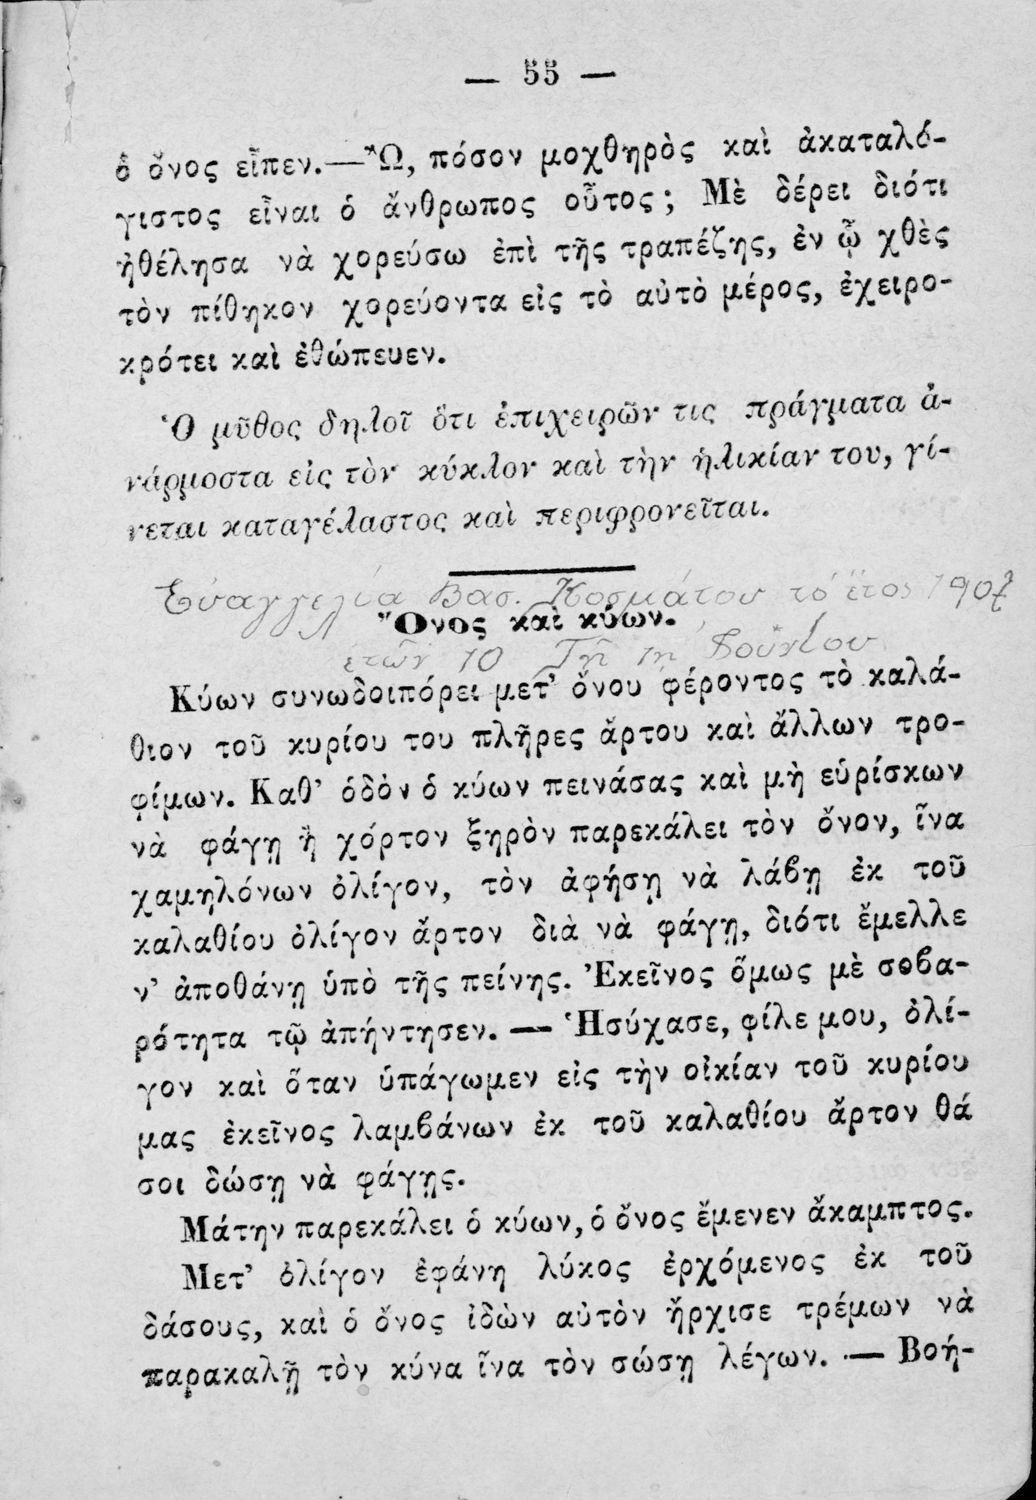 — 55 —
ὁ ὄνος εἶπεν.—Ὢ, πόσον μοχθηρὸς καὶ ἀκαταλό-
γιστος εἶναι ὁ ἄνθρωπος οὗτος; Μὲ δέρει διότι
ἠθέλησα νὰ χορεύσω ἐπὶ τῆς τραπέζης, ἐν ᾧ χθὲς
τὸν πίθηκον χορεύοντα εἰς τὸ αὐτὸ μέρος, ἐχειρο-
κρότει καὶ ἐθώπευεν.
Ὁ μῦθος δηλοῖ ὅτι ἐπιχειρῶν τις πράγματα ἀ-
νάρμοστα εἰς τὸν κύκλον καὶ τὴν ἡλικίαν του, γί-
νεται καταγέλαστος καὶ περιφρονεῖται.
Εὐαγγελία Βασ. Κοσμάτου τό ἔτος 1907
Ὄνος καὶ κύων.
ἐτῶν 10 Τῇ 1ῃ Ἰουνίου
Κύων συνωδοιπόρει μετ’ ὄνου φέροντος τὸ καλά-
θιον τοῦ κυρίου του πλῆρες ἄρτου καὶ ἄλλων τρο-
φίμων. Καθ’ ὁδὸν ὁ κύων πεινάσας καὶ μὴ εὑρίσκων
νὰ φάγῃ ἢ χόρτον ξηρὸν παρεκάλει τὸν ὄνον, ἵνα
χαμηλόνων ὀλίγον, τὸν ἀφήσῃ νὰ λάβῃ ἐκ τοῦ
καλαθίου ὀλίγον ἄρτον διὰ νὰ φάγῃ, διότι ἔμελλε
ν’ ἀποθάνῃ ὑπὸ τῆς πείνης. Ἐκεῖνος ὅμως μὲ σοβα-
ρότητα τῷ ἀπήντησεν. — Ἡσύχασε, φίλε μου, ὀλί-
γον καὶ ὅταν ὑπάγωμεν εἰς τὴν οἰκίαν τοῦ κυρίου
μας ἐκεῖνος λαμβάνων ἐκ τοῦ καλαθίου ἄρτον θά
σοι δώσῃ νὰ φάγῃς.
Μάτην παρεκάλει ὁ κύων, ὁ ὄνος ἔμενεν ἄκαμπτος.
Μετ’ ὀλίγον ἐφάνη λύκος ἐρχόμενος ἐκ τοῦ
δάσους, καὶ ὁ ὄνος ἰδὼν αὐτὸν ἤρχισε τρέμων νὰ
παρακαλῇ τὸν κύνα ἵνα τὸν σώσῃ λέγων. — Βοή-